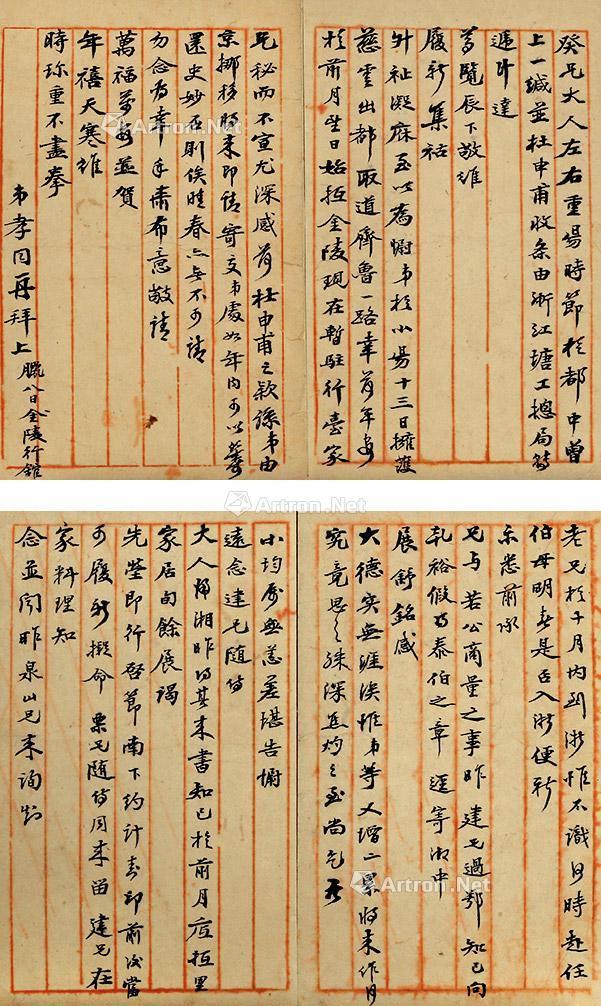 癸兄大人左右重陽時節於都中曾
上一緘並杜申甫收条由浙江塘工總局轉
遞計達
覽辰下敬維
履新集祜
升祉凝庥至以為慰弟於小陽十三日擁護
慈雲出都取道齊魯一路幸荷平安
於前月望日始抵金陵現在暫駐行臺家
兄秘而不宣尤深感荷杜申甫之款係弟由
京挪移將來即請寄交弟處如年內可以籌
還更妙否則俟春亦無不可請
勿念為幸手肅布意敬請
萬福並賀
年禧天寒維
時珍重不盡拳
弟孝同再拜上 臘八日金陵行館
老兄於十月內到浙惟不識何時赴任
伯母明春是否入浙便新
示悉前承
兄與若公商量之事昨建兄過鄂知已向
乳裕假得泰伯之章逕寄湘中
展舒銘感
大德實無涯涘惟弟等又增一累將來作何
究竟思之殊深焦灼之至尚乞
小均安無恙差堪告慰
遠念建兄隨侍
大人歸湘昨得其來書知已於前月底抵里
家居旬餘展謁
先塋即行啟節南下約計封印前後當
可履新擬命栗兄隨侍同來留建兄在
家料理知
念並聞昨泉山兄來詢知
Artron.Net